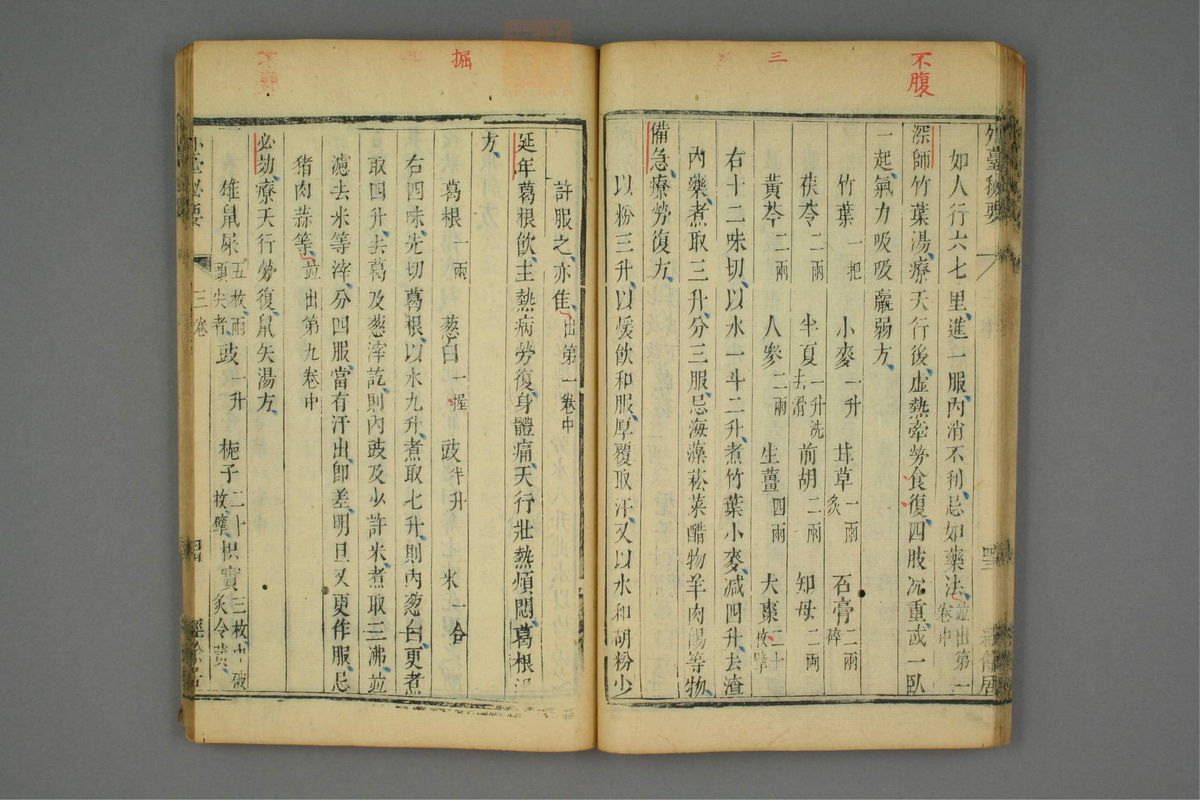 不腹
三
外臺秘要
如人行六七里進一服內消不利忌如藥法並出第一卷中
深師竹葉湯療天行後虛熱牽勞食復四肢沉重或一臥
一起氣力吸吸羸弱方
竹葉一把 小麥一升 甘草一兩炙 石膏二兩碎
茯苓二兩 半夏一升洗去滑 前胡二兩 知母二兩
黃芩二兩 人參二兩 生薑四兩 大棗二十枚擘
右十二味切以水一斗二升煮竹葉小麥減四升去渣
內藥煮取三升分三服忌海藻菘菜醋物羊肉餳等物
備急療勞復方
以粉三升以煖飲和服厚覆取汗又以水和胡粉少
掘
許服之亦佳出第一卷中
延年葛根飲主熱病勞復身體痛天行壯熱煩悶葛根湯
方
葛根一兩 葱白一握 豉半升 米一合
右四味先切葛根以水九升煮取七升則內葱白更煮
取四升去葛及葱滓訖則內豉及少許米煮取三沸並
濾去米等滓分四服當有汗出即差明旦又更作服忌
豬肉蒜等並出第九卷中
必効療天行勞復鼠矢湯方
雄鼠屎五枚兩頭尖者 豉一升 梔子二十枚擘 枳實三枚中破炙令黃
外臺秘要
三卷